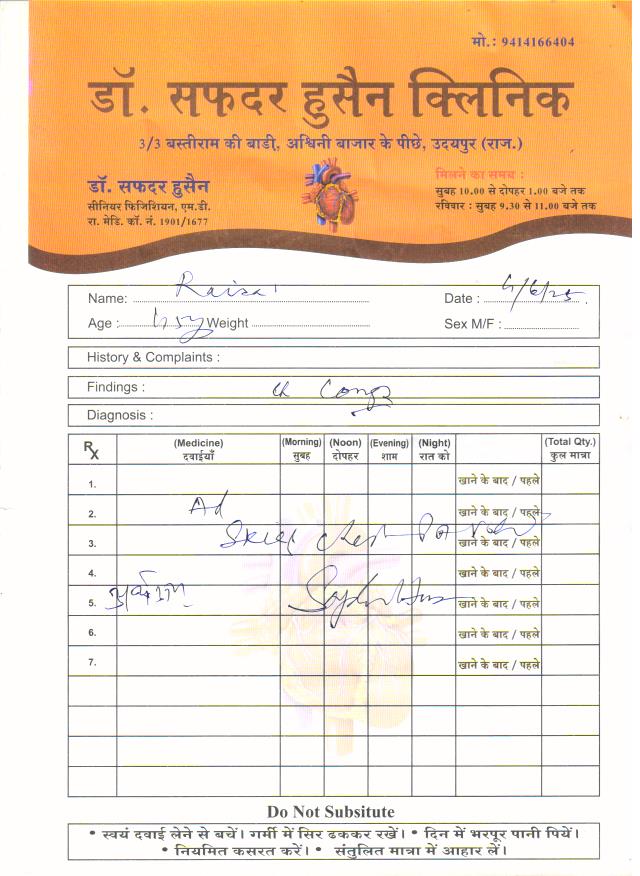 मो.: 9414166404
डॉ. सफदर हुसैन क्लिनिक
3/3 बस्तीराम की बाडी, अश्विनी बाजार के पीछे, उदयपुर (राज.)
डॉ. सफदर हुसैन
सीनियर फिजिशियन, एम.डी.
रा. मेडि. कॉ. नं. 1901/1677
मिलने का समय :
सुबह 10.00 से दोपहर 1.00 बजे तक
रविवार : सुबह 9.30 से 11.00 बजे तक
Name: Date : 4/6/25
Age : Weight Sex M/F :
History & Complaints :
Findings :
Diagnosis :
Rx (Medicine) (Morning) (Noon) (Evening) (Night) (Total Qty.)
दवाईयाँ सुबह दोपहर शाम रात को कुल मात्रा
1. खाने के बाद / पहले
2. Ad खाने के बाद / पहले
3. खाने के बाद / पहले
4. खाने के बाद / पहले
5. खाने के बाद / पहले
6. खाने के बाद / पहले
7. खाने के बाद / पहले
Do Not Subsitute
• स्वयं दवाई लेने से बचें। गर्मी में सिर ढककर रखें। • दिन में भरपूर पानी पियें।
• नियमित कसरत करें। • संतुलित मात्रा में आहार लें।